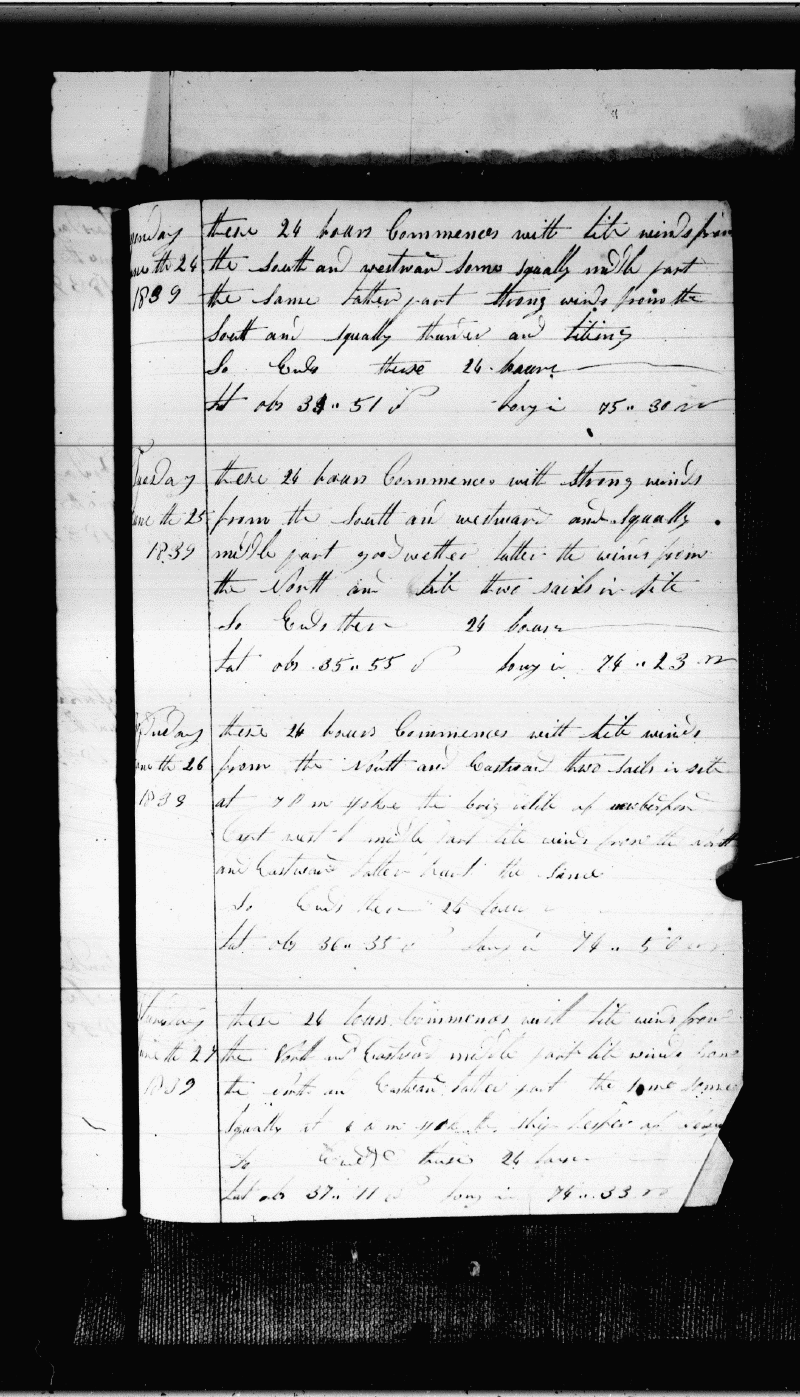 Monday these 24 hours Commences with lite winds from
June th 24 the South and westward some squally middle part
1839 the same latter part strong winds from the
South and squally thunder and liting
So Ends these 24 hours
Lat obs 35" 51 Long in 75" 30 w
Tuesday these 24 hours Commences with strong winds
June th 25 from the South and westward and squally
1839 middle part good wether latter the winds from
the North and lite two sails in site
So Ends these 24 hours
Lat obs 35" 55 Long in 74" 23 w
these 24 hours Commences with lite winds
June th 26 from the North and Eastward two sails in site
1839 at 7 P m spoke the brig of
Capt middle part lite winds from the North
and Eastward latter part the same
So Ends these 24 hours
Lat obs 36" 35 Long in 74" 50
Thursday these 24 hours Commences with lite winds from
June th 27 the North and Eastward middle part lite winds from
1839 the North and Eastward latter part the same some
squally at 8 a m spoke the ship of
So Ends these 24 hours
Lat obs 37" 11 Long in 74" 33 w